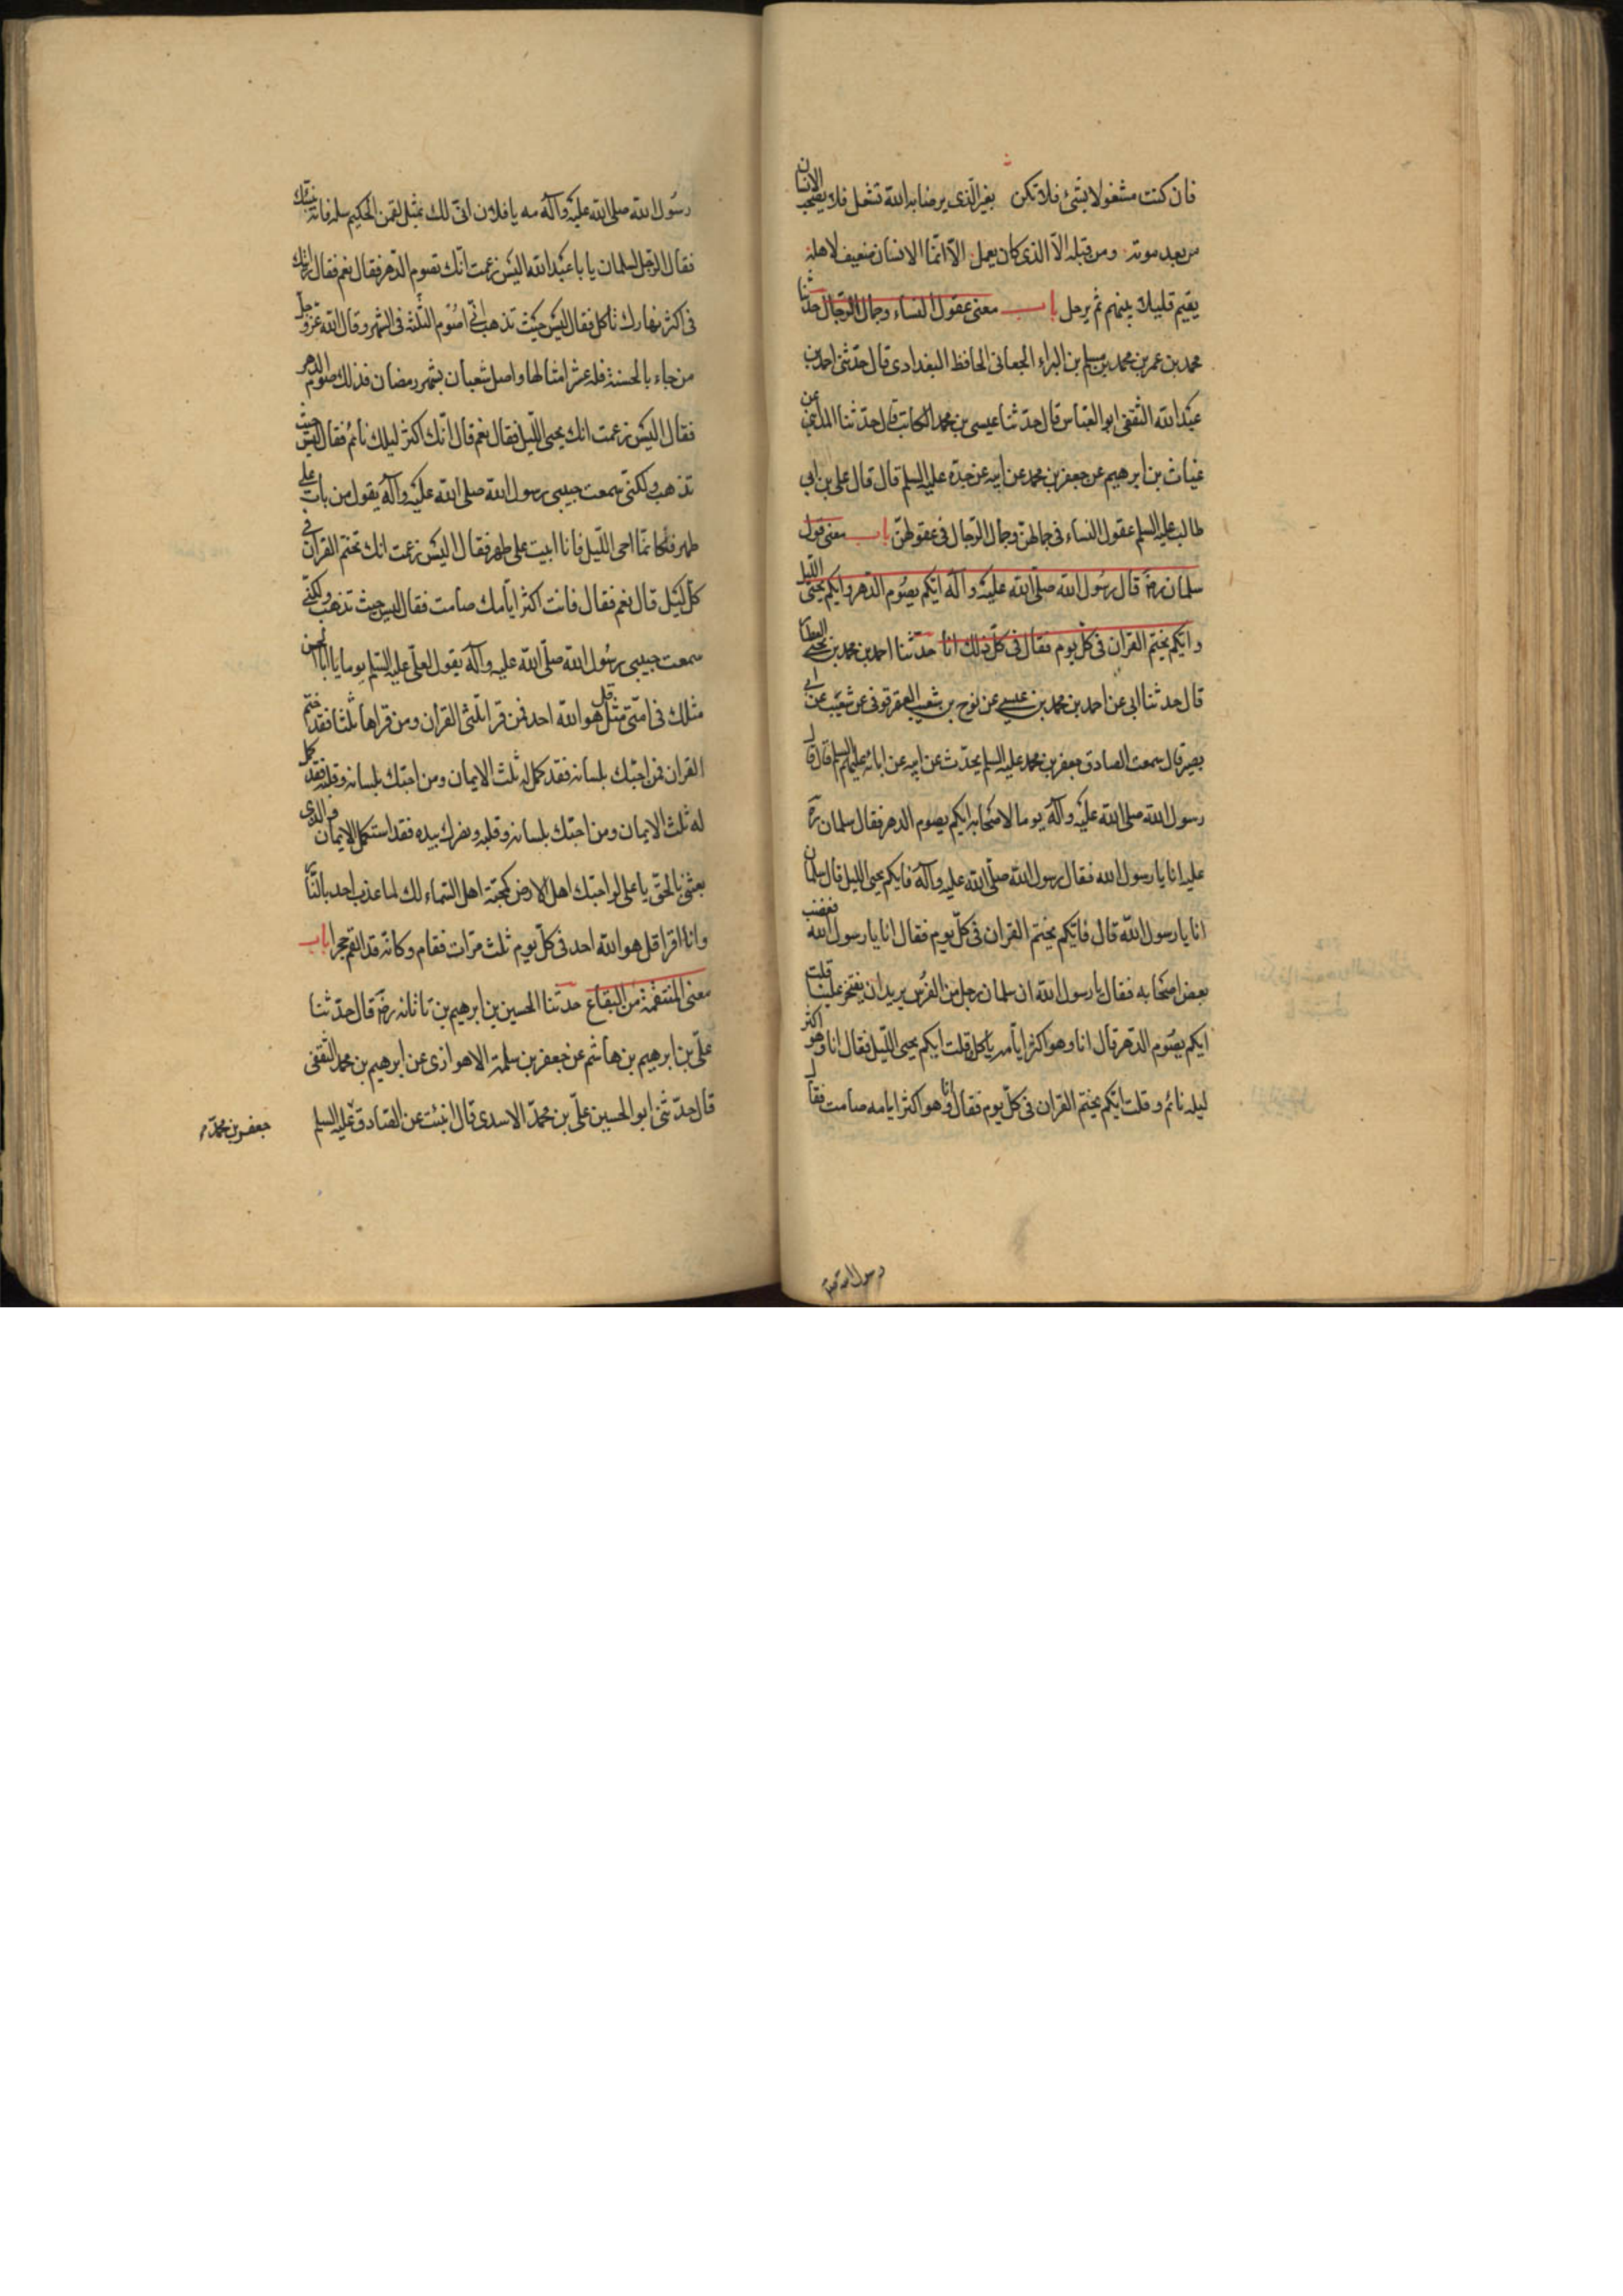 فان كنت مشغولا بشئ فلا تكن بغير الّذى يرضا به الله تشغل فلا يصحب الانسان
من بعد موته ومن قبله الاّ الذى كان يعمل الاّ انمّا الانسان ضيف لاهله
يقيم قليلك بينهم ثم يرحل باب معنى عقول النساء وجمال الرّجال حدّثنا
محمد بن عمر بن محمد بن مسلم بن البراء الجعابى الحافظ البغدادى قال حدّثنى احمد بن
عبد الله الثقفى ابو العباس قال حدّثنا عيسى بن محمد الكاتب قال حدّثنا المداينى عن
غياث بن ابرهيم عن جعفر بن محمد عن ابيه عن جدّه عليه السلم قال قال على بن ابى
طالب عليه السلم عقول النساء فى جمالهنّ وجمال الرّجال فى عقولهنّ باب معنى قول
سلمان رضَ قال رسُول الله صلّى الله عليْه وآلهَ ايّكم يصُوم الدّهر وايكم يحيى الليل
وايّكم يختم القران فى كلّ يوم فقال فى كلّ ذلك انا حدّثنا احمد بن محمد بن يحيى العطار
قال حدثنا ابى عن احمد بن محمد بن عيسى عن نوح بن شعيب العقرقوفى عن شعيب عن ابى
بصير قال سمعت الصادق جعفر بن محمد عليه السلم يحدّث عن ابيه عن ابائه عليهم السلم قال قال
رسول الله صلى الله عليْه وآلهَ يوما لاصحابه ايكم يصوم الدهر فقال سلمان رحمة
عليه انا يا رسول الله فقال رسول الله صلّى الله عليه وآلهَ فايكم يحيى الليل قال سلمان
انا يا رسول الله قال فايّكم يختم القران فى كلّ يوم فقال انا يا رسول الله فغضب
بعض اصحابه فقال يا رسول الله ان سلمان رجل من الفرُس يريد ان يفتخر علينا قلت
ايكم يصُوم الدّهر قال انا وهو اكثر ايّامه ياكل وقلت ايكم يحيى اللّيل فقال انا وهو اكثر
ليله نائم وقلت ايّكم يختم القران فى كلّ يوم فقال انا وهو اكثر ايامه صامت فقال
رسول الله
رسُول الله صلى الله عليْه وآلهُ مه يا فلان انىّ لك بمثل لقمن الحكيم سله فانه ينبّئك
فقال الرّجل لسلمان يا با عبْد الله اليْس زعمت انّك تصوم الدّهر فقال نعم فقال رايتك
فى اكثر نهارك تاكل فقال ليْس حيْث تذهب انّى اصُوم الثلثه فى الشهر وقال الله عزّ وجلّ
من جاء بالحسنة فله عشر امثالها واصل شعبان بشهر رمضان فذلك صوم الدهر
فقال اليْس زعمت انك يحيى اللّيل فقال نعم قال انّك اكثر ليلك نائم فقال ليْس حيث
تذهب ولكنى سمعت حبيبى رسول الله صلى الله عليْه وآلهُ يقول من بات على
طهر فكانمّا احى اللّيل فانا ابيت على طهر فقال اليْس زعمت انك تختم القران فى
كلّ ليْل قال نعم فقال فانت اكثر ايّامك صامت فقال ليس حيث تذهب ولكنّى
سمعت حبيبى رسُول الله صلّى الله عليه وآلهَ يقول لعلّى عليه السّلم يوما يا ابا الحسن
مثلك فى امتى مثل قل هو الله احد فمن قرا ثلثى القران ومن قراها ثلثا فقد ختم
القران فمن احبّك بلسانه فقد كمل له ثلث الايمان ومن احبّك بلسانه وقلبه فقد كمل
له ثلثا الايمان ومن احبّك بلسانه وقلبه ونصرك بيده فقد استكمل الايمان والّذى
بعثنى بالحقّ يا على لو احبّك اهل الارض كمحبّة اهل السّماء لك لما عذب احد بالنّار
وانا اقرا قل هو الله احد فى كلّ يوم ثلث مرات فقام وكانه قد القم حجرا باب
معنى المنتقمة من البقاع حدّثنا الحسين بن ابرهيم بن تاتانه رضَ قال حدّثنا
علىّ بن ابرهيم بن هاشم عن جعفر بن سلمة الاهوازى عن ابرهيم بن محمد الثقفى
قال حدّثنى ابو الحسين علىّ بن محمدّ الاسدى قال انبئت عن الصّادق عليه السلم
جعفر بن محمّد